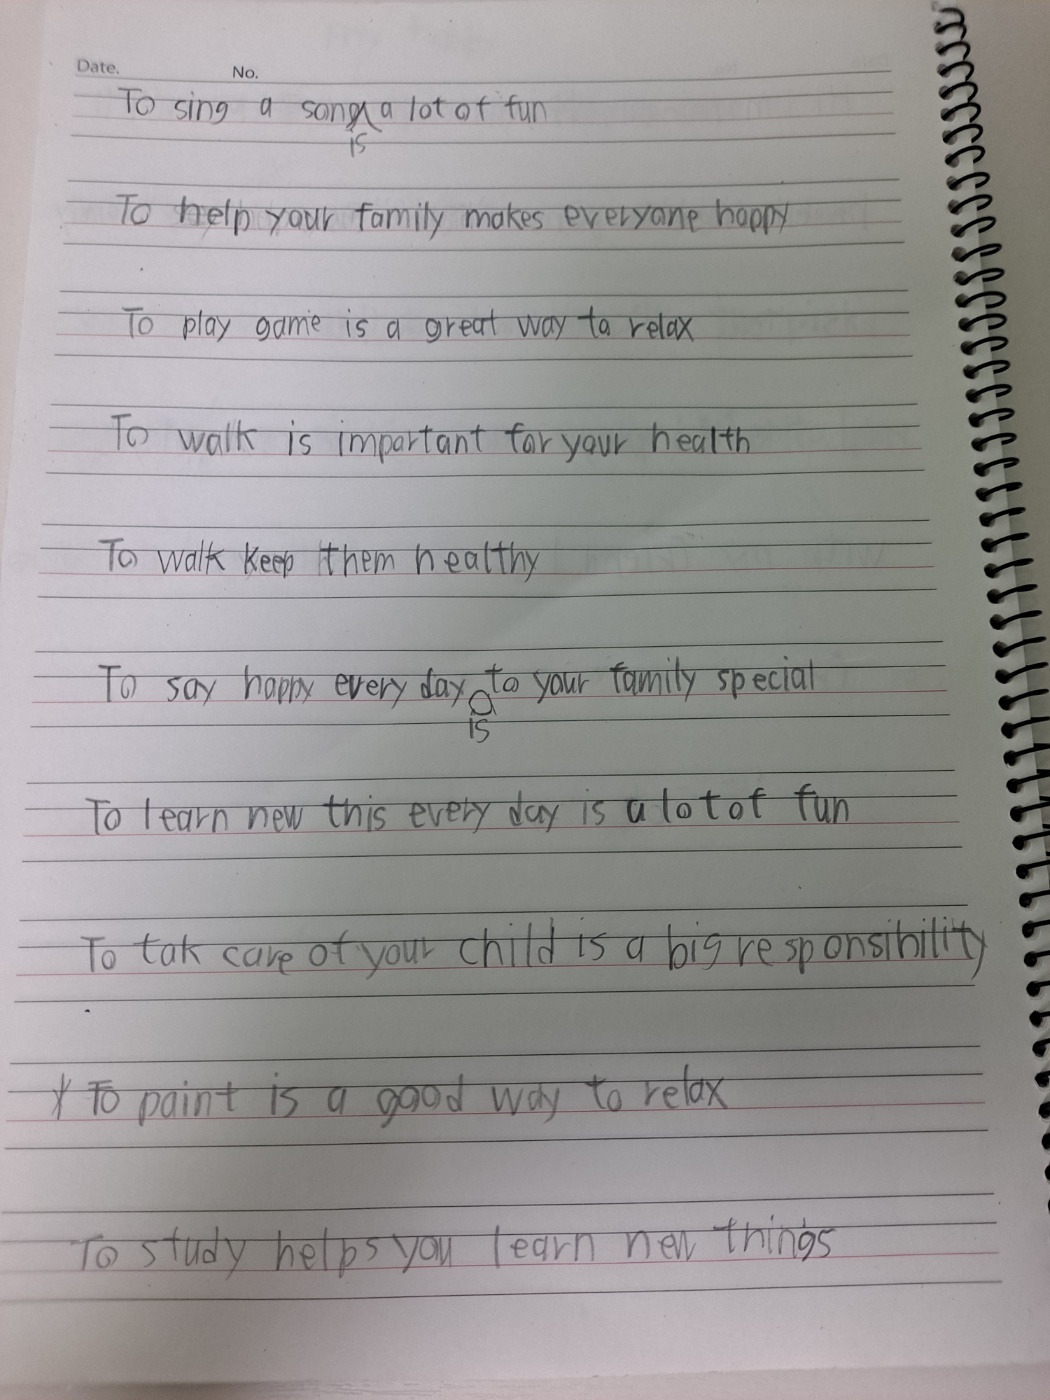 Date. No.
To sing a song a lot of fun
is
To help your family makes everyone happy
To play game is a great way to relax
To walk is important for your health
To walk keep them healthy
To say happy every day to your family special
is
To learn new this every day is a lot of fun
To tak care of your child is a big responsibility
To paint is a good way to relax
To study helps you learn new things